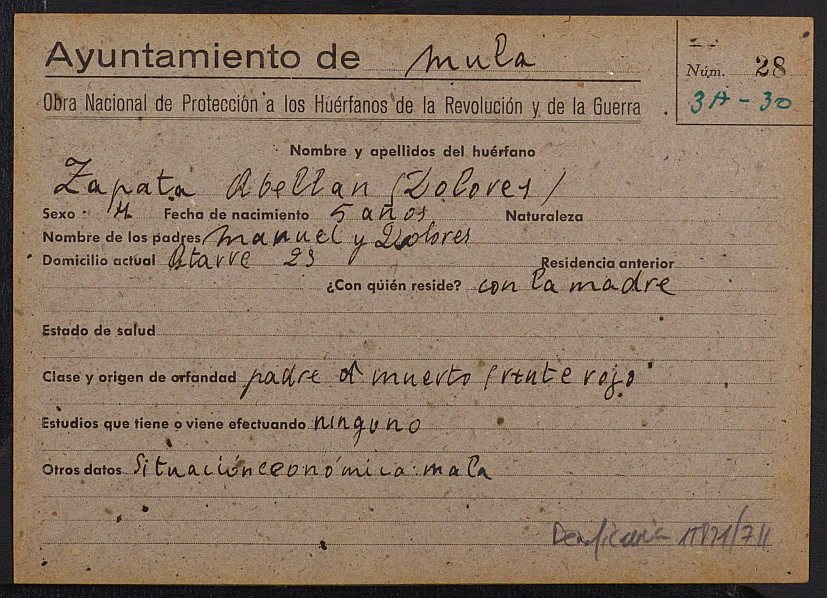 Ayuntamiento de Mula
Núm. 28
3A - 30
Obra Nacional de Protección a los Huérfanos de la Revolución y de la Guerra
Nombre y apellidos del huérfano
Zapata Abellan (Dolores)
Sexo H Fecha de nacimiento 5 años Naturaleza
Nombre de los padres Manuel y Dolores
Domicilio actual 23 Residencia anterior
¿Con quién reside? con la madre
Estado de salud
Clase y origen de orfandad padre muerto frente rojo
Estudios que tiene o viene efectuando ninguno
Otros datos Situación económica mala